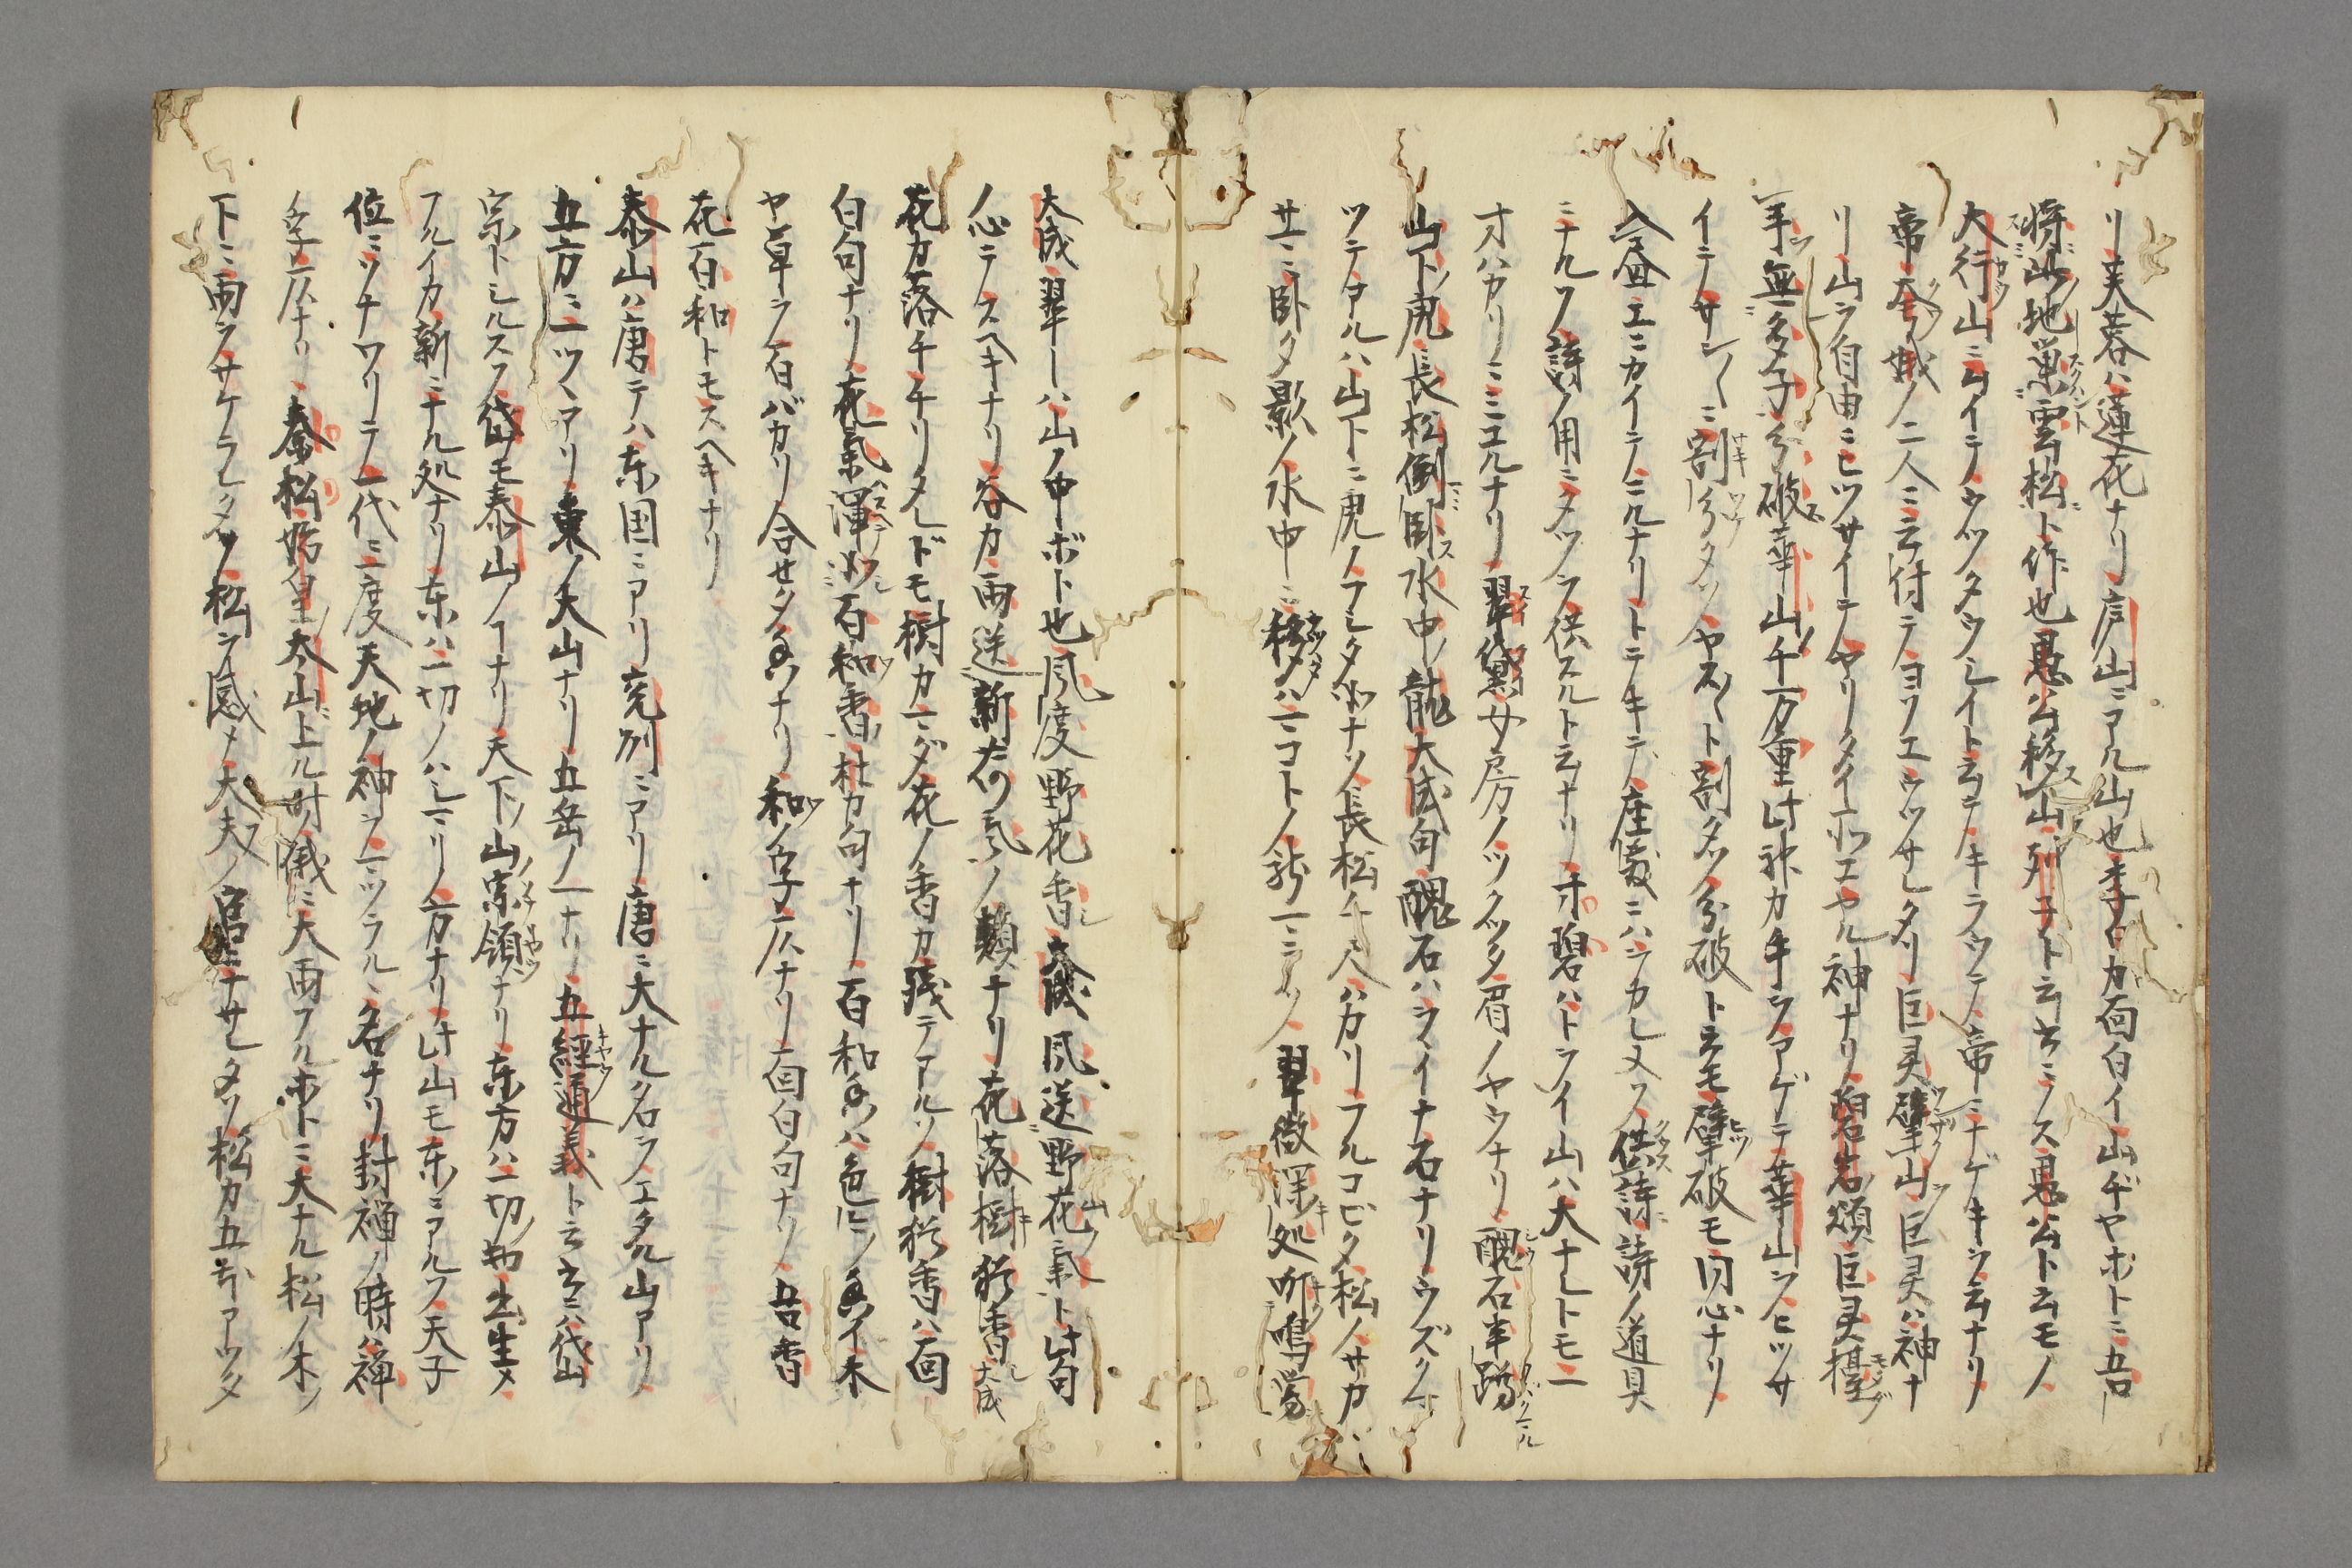 リ芙蓉ハ蓮花ナリ庐山ニアル山也李白カ面白イ山ヂヤホトニ吾
将此地巣雲松ト作也愚公移山列子ト云書ニノス愚公ト云モノ
大行山ニムイテノウツタウシイト云テノキラツテ帝ニナゲキヲ云ナリ
帝夸娥ノ二人ニ云付テヨソエウツサレタリ巨灵擘山巨灵ハ神ナ
リ山ヲ自由ニヒツサイテヤリタイ所エヤル神ナリ碧岩頌巨灵擡
手無多子分破華山千万重此神カ手ヲアゲテ華山ヲヒツサ
イテサンくニ割分タソヤスくト割タソ分破ト云モ擘破モ同心ナリ
盆エニカイテノニルナリトニキテ座敷ニハヲカレヌソ供詩詩ノ道具
ニナルソ詩ノ用ニタツヲ供スルト云ナリ寸碧ハトヲイ山ハ大ナレトモ一
寸ハカリニミエルナリ翠黛女房ノツクツタ眉ノヤウナリ醜石半蹲
山下虎長松倒臥水中龍大成句醜石ハヲイナ石ナリウズクマ
ツテアルハ山下ニ虎ノフシタ如ナソ長松千尺ハカリフルコビタ松ノサカ
サニ臥タ影ノ水中ニ移タハマコトノ龍ニニタソ翠微深処断鳴鴬
大成翠ーハ山ノ中ホト也風度野花香大成風送野花氣ト此句
ノ心ヲスヘキナリ谷カ雨送新𬼀氣ノ類ナリ花落樹猶香大成
花カ落チチリタレドモ樹カマダ花ノ香カ残テアルソ樹猶香ハ面
白句ナリ花氣渾如百和香杜カ句ナリ百和香ハ色ヒノ香イ木
ヤ草ヲ百バカリ合セタ香ナリ和ノ字仄ナリ面白句ナリ吾香
花百和トモスヘキナリ
泰山ハ唐テハ东国ニアリ兗州ニアリ唐ニ大ナル名ヲエタル山アリ
五方ニ一ツヽアリ東ノ大山ナリ五岳ノ一ナリ五經通義ト云書ニハ岱山
宗トシルスソ岱モ泰山ノコナリ天下ノ山ノ宗領ナリ东方ハ一切ノ物生メ
フルイカ新ニナル処ナリ东ハ一切ノハシマリノ方ナリ此山モ东ニアルソ天子
位ニツナワリテ一代ニ一度天地ノ神ヲマツラル名ナリ封禅ノ時ハ禅
ノ字仄ナリ秦松始皇太山上ル時ノ俄ニ大雨フルホトニ大ナル松ノ木ノ
下ニ雨ヲサケラレタソ松ヲ感メ大夫ノ官ニナサレタソ松カ五本アツタ